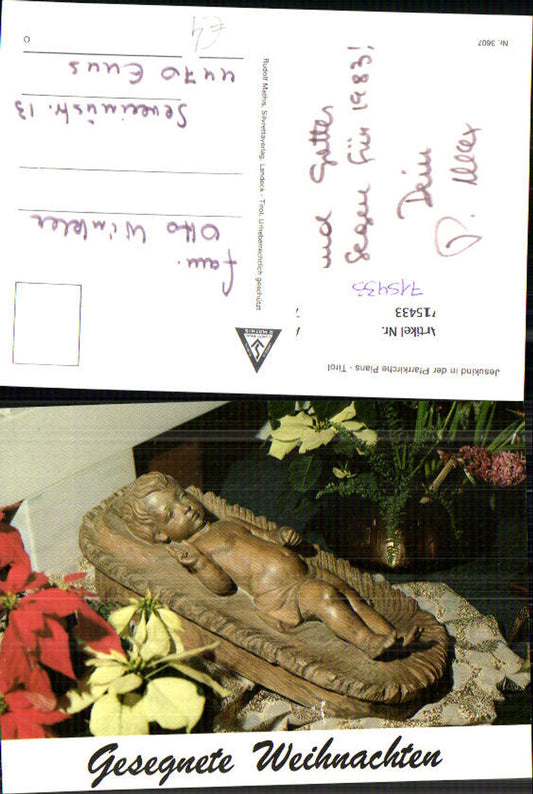 Jesukind in der Pfarrkirche Pians - Tirol
Artikel Nr.
715433
715433
und Gottes
Segen für 1983!
Dein
P. Max
Nr. 3607
Rudolf Mathis, Silvrettaverlag, Landeck - Tirol. Urheberrechtlich geschützt
Fam.
Otto Winkler
Severinstr. 13
4470 Enns
Gesegnete Weihnachten